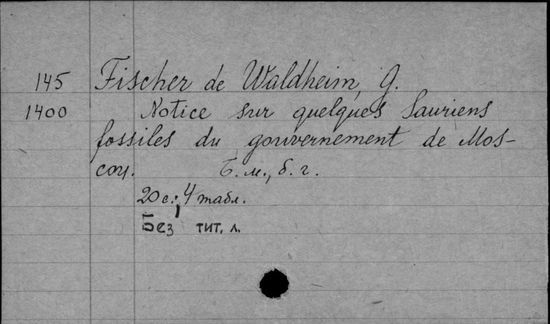 145 Fischer de Waldheim, G.
1400 Notice sur quelques Sauriens
fossiles du gouvernement de Mos-
cou. Б.м., б.г.
20 с.; 4 табл.
Без тит. л.